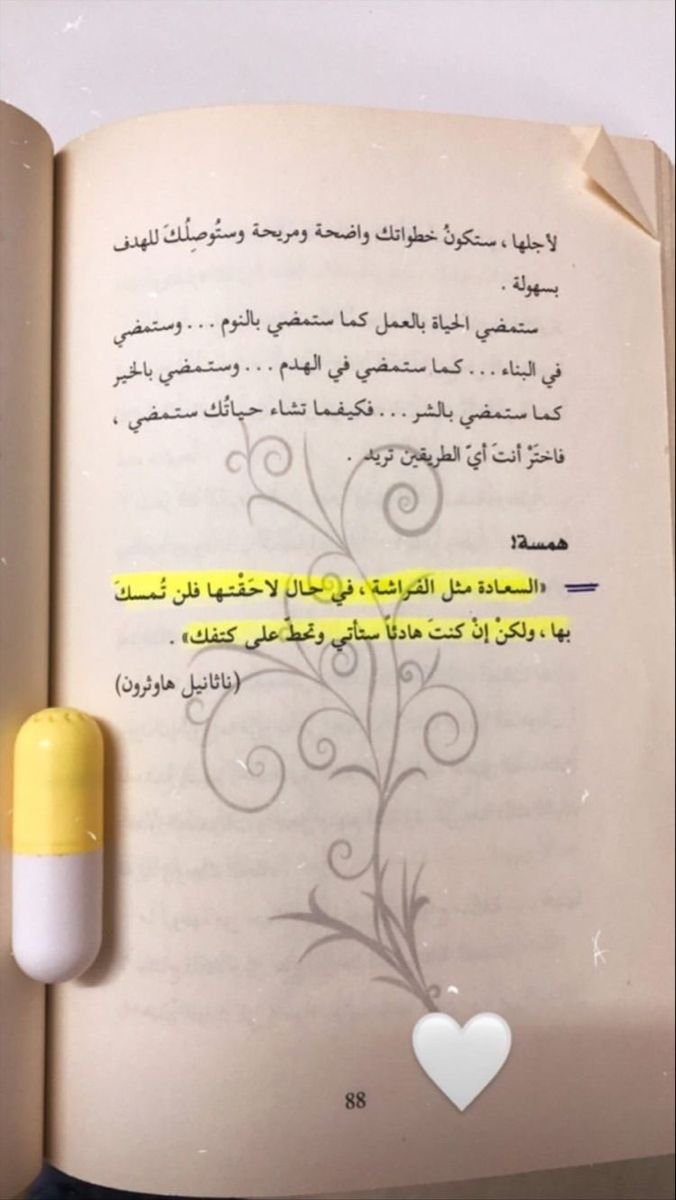 لأجلها ، ستكونُ خطواتك واضحة ومريحة وستُوصِلُكَ للهدف
بسهولة .
ستمضي الحياة بالعمل كما ستمضي بالنوم ... وستمضي
في البناء ... كما ستمضي في الهدم ... وستمضي بالخير
كما ستمضي بالشر ... فكيفما تشاء حياتُك ستمضي ،
فاختَرْ أنتَ أيّ الطريقين تريد .
همسة!
«السعادة مثل الفراشة ، في حال لاحَقْتها فلن تُمسكَ
بها ، ولكنْ إنْ كنتَ هادئاً ستأتي وتحطّ على كتفك» .
(ناثانيل هاوثرون)
88